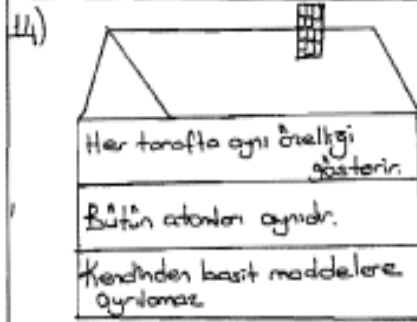 14)
Her tarafta aynı özelliği
gösterir.
Bütün atomları aynıdır.
Kendinden basit maddelere
ayrılamaz